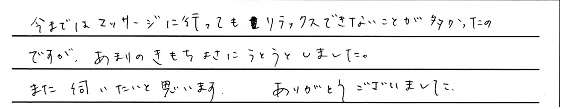 今まではマッサージに行ってもリラックスできないことが多かったの
ですが、あまりのきもちよさにうとうとしました。
また伺いたいと思います。 ありがとうございました。